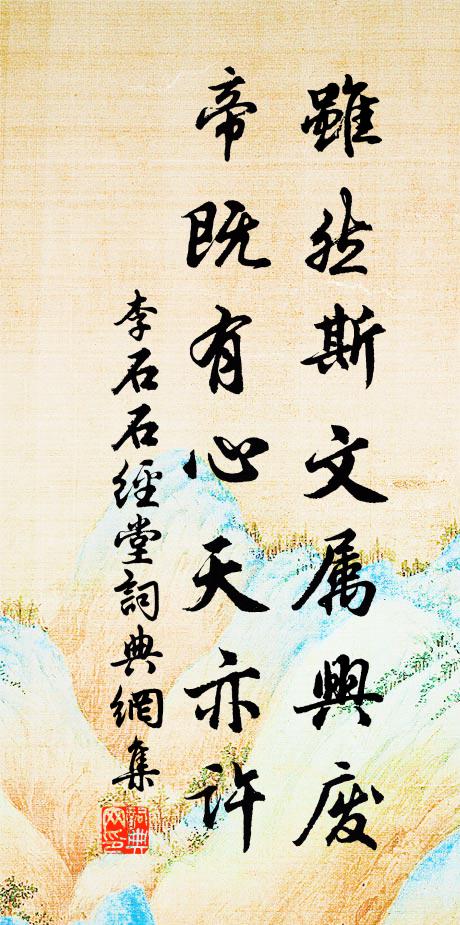 雖然斯文属興废
帝既有心天亦许
李石石經堂詞典網集
詞典
网印